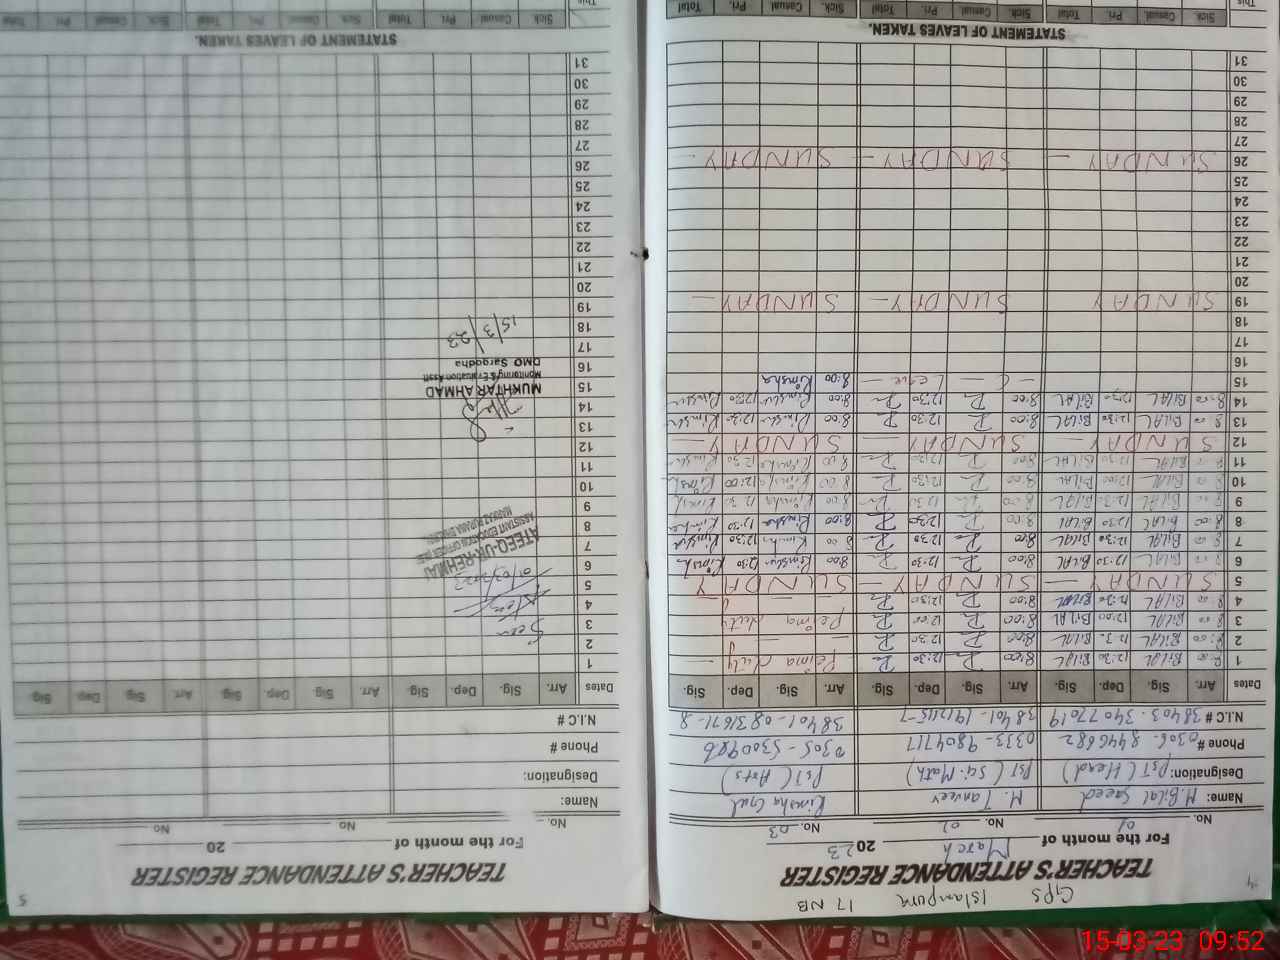 GPS Islampura 17 NB
4
TEACHER'S ATTENDANCE REGISTER
For the month of March 2023
No. 01 No. 02 No. 03
Name: M. Bilal Saeed M. Tanveer Rimsha Gul
Designation: PST (Head) PST (Sci-Math) PST (Arts)
Phone # 0306-8446682 0333-9804717
N.I.C # 38403-34077019 38401-0831671-8
Dates Arr. Sig. Dep. Sig. Arr. Sig. Dep. Sig. Arr. Sig. Dep. Sig.
1 8:00 BILAL 12:30 BILAL 8:00 R 12:30 R Peima duty
2 8:00 BILAL BILAL 8:00 R 12:30 R
3 8:00 BILAL 12:00 BILAL 8:00 R 12:00 R Peima duty
4 8:00 BILAL 12:30 BILAL 8:00 R 12:30 R
5 SUNDAY — SUNDAY — SUNDAY
6 8:00 BILAL 12:30 BILAL 8:00 R 12:30 R 8:00 Rimsha 12:30 Rimsha
7 8:00 BILAL 12:30 BILAL 8:00 R 12:30 R 8:00 Rimsha 12:30 Rimsha
8 8:00 BILAL 12:30 BILAL 8:00 R 12:30 R 8:00 Rimsha 12:30 Rimsha
9 8:00 BILAL 12:30 BILAL 8:00 R 12:30 R 8:00 Rimsha 12:30 Rimsha
10 8:00 BILAL 12:00 BILAL 8:00 R 12:30 R 8:00 Rimsha 12:00 Rimsha
11 8:00 BILAL 12:30 BILAL 8:00 R 12:30 R 8:00 Rimsha 12:30 Rimsha
12 SUNDAY — SUNDAY — SUNDAY —
13 8:00 BILAL 12:30 BILAL 8:00 R 12:30 R 8:00 Rimsha 12:30 Rimsha
14 8:00 BILAL 12:30 BILAL 8:00 R 12:30 R 8:00 Rimsha 12:30 Rimsha
15 — C — Leave — 8:00 Rimsha
16
17
18
19 SUNDAY SUNDAY — SUNDAY —
20
21
22
23
24
25
26 SUNDAY — SUNDAY — SUNDAY —
27
28
29
30
31
STATEMENT OF LEAVES TAKEN.
This Sick. Casual Pri. Total Sick. Casual Pri. Total Sick. Casual Pri. Total
5
TEACHER'S ATTENDANCE REGISTER
For the month of 20
No. No No
Name:
Designation:
Phone #
N.I.C #
Dates Arr. Sig. Dep. Sig. Arr. Sig. Dep. Sig. Arr. Sig. Dep. Sig.
1
2
3 Seen
4
5 01/03/2023
6 ATEEQ-UR-REHMAN
7 ASSISTANT EDUCATION OFFICER
8
9
10
11
12
13
14
15 MUKHTAR AHMAD
Monitoring & Evaluation Asstt
16 DMO Sargodha
17
18 15/3/23
19
20
21
22
23
24
25
26
27
28
29
30
31
STATEMENT OF LEAVES TAKEN.
This Sick Casual Pri. Total Sick Casual Pri. Total Sick Casual Pri. Total
15-03-23 09:52